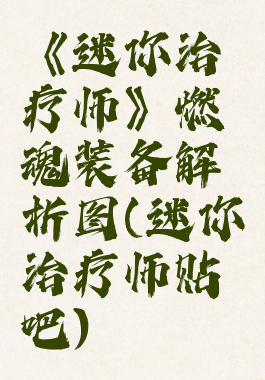 《迷你治
疗师》燃
魂装备解
析图(迷你
治疗师贴
吧)